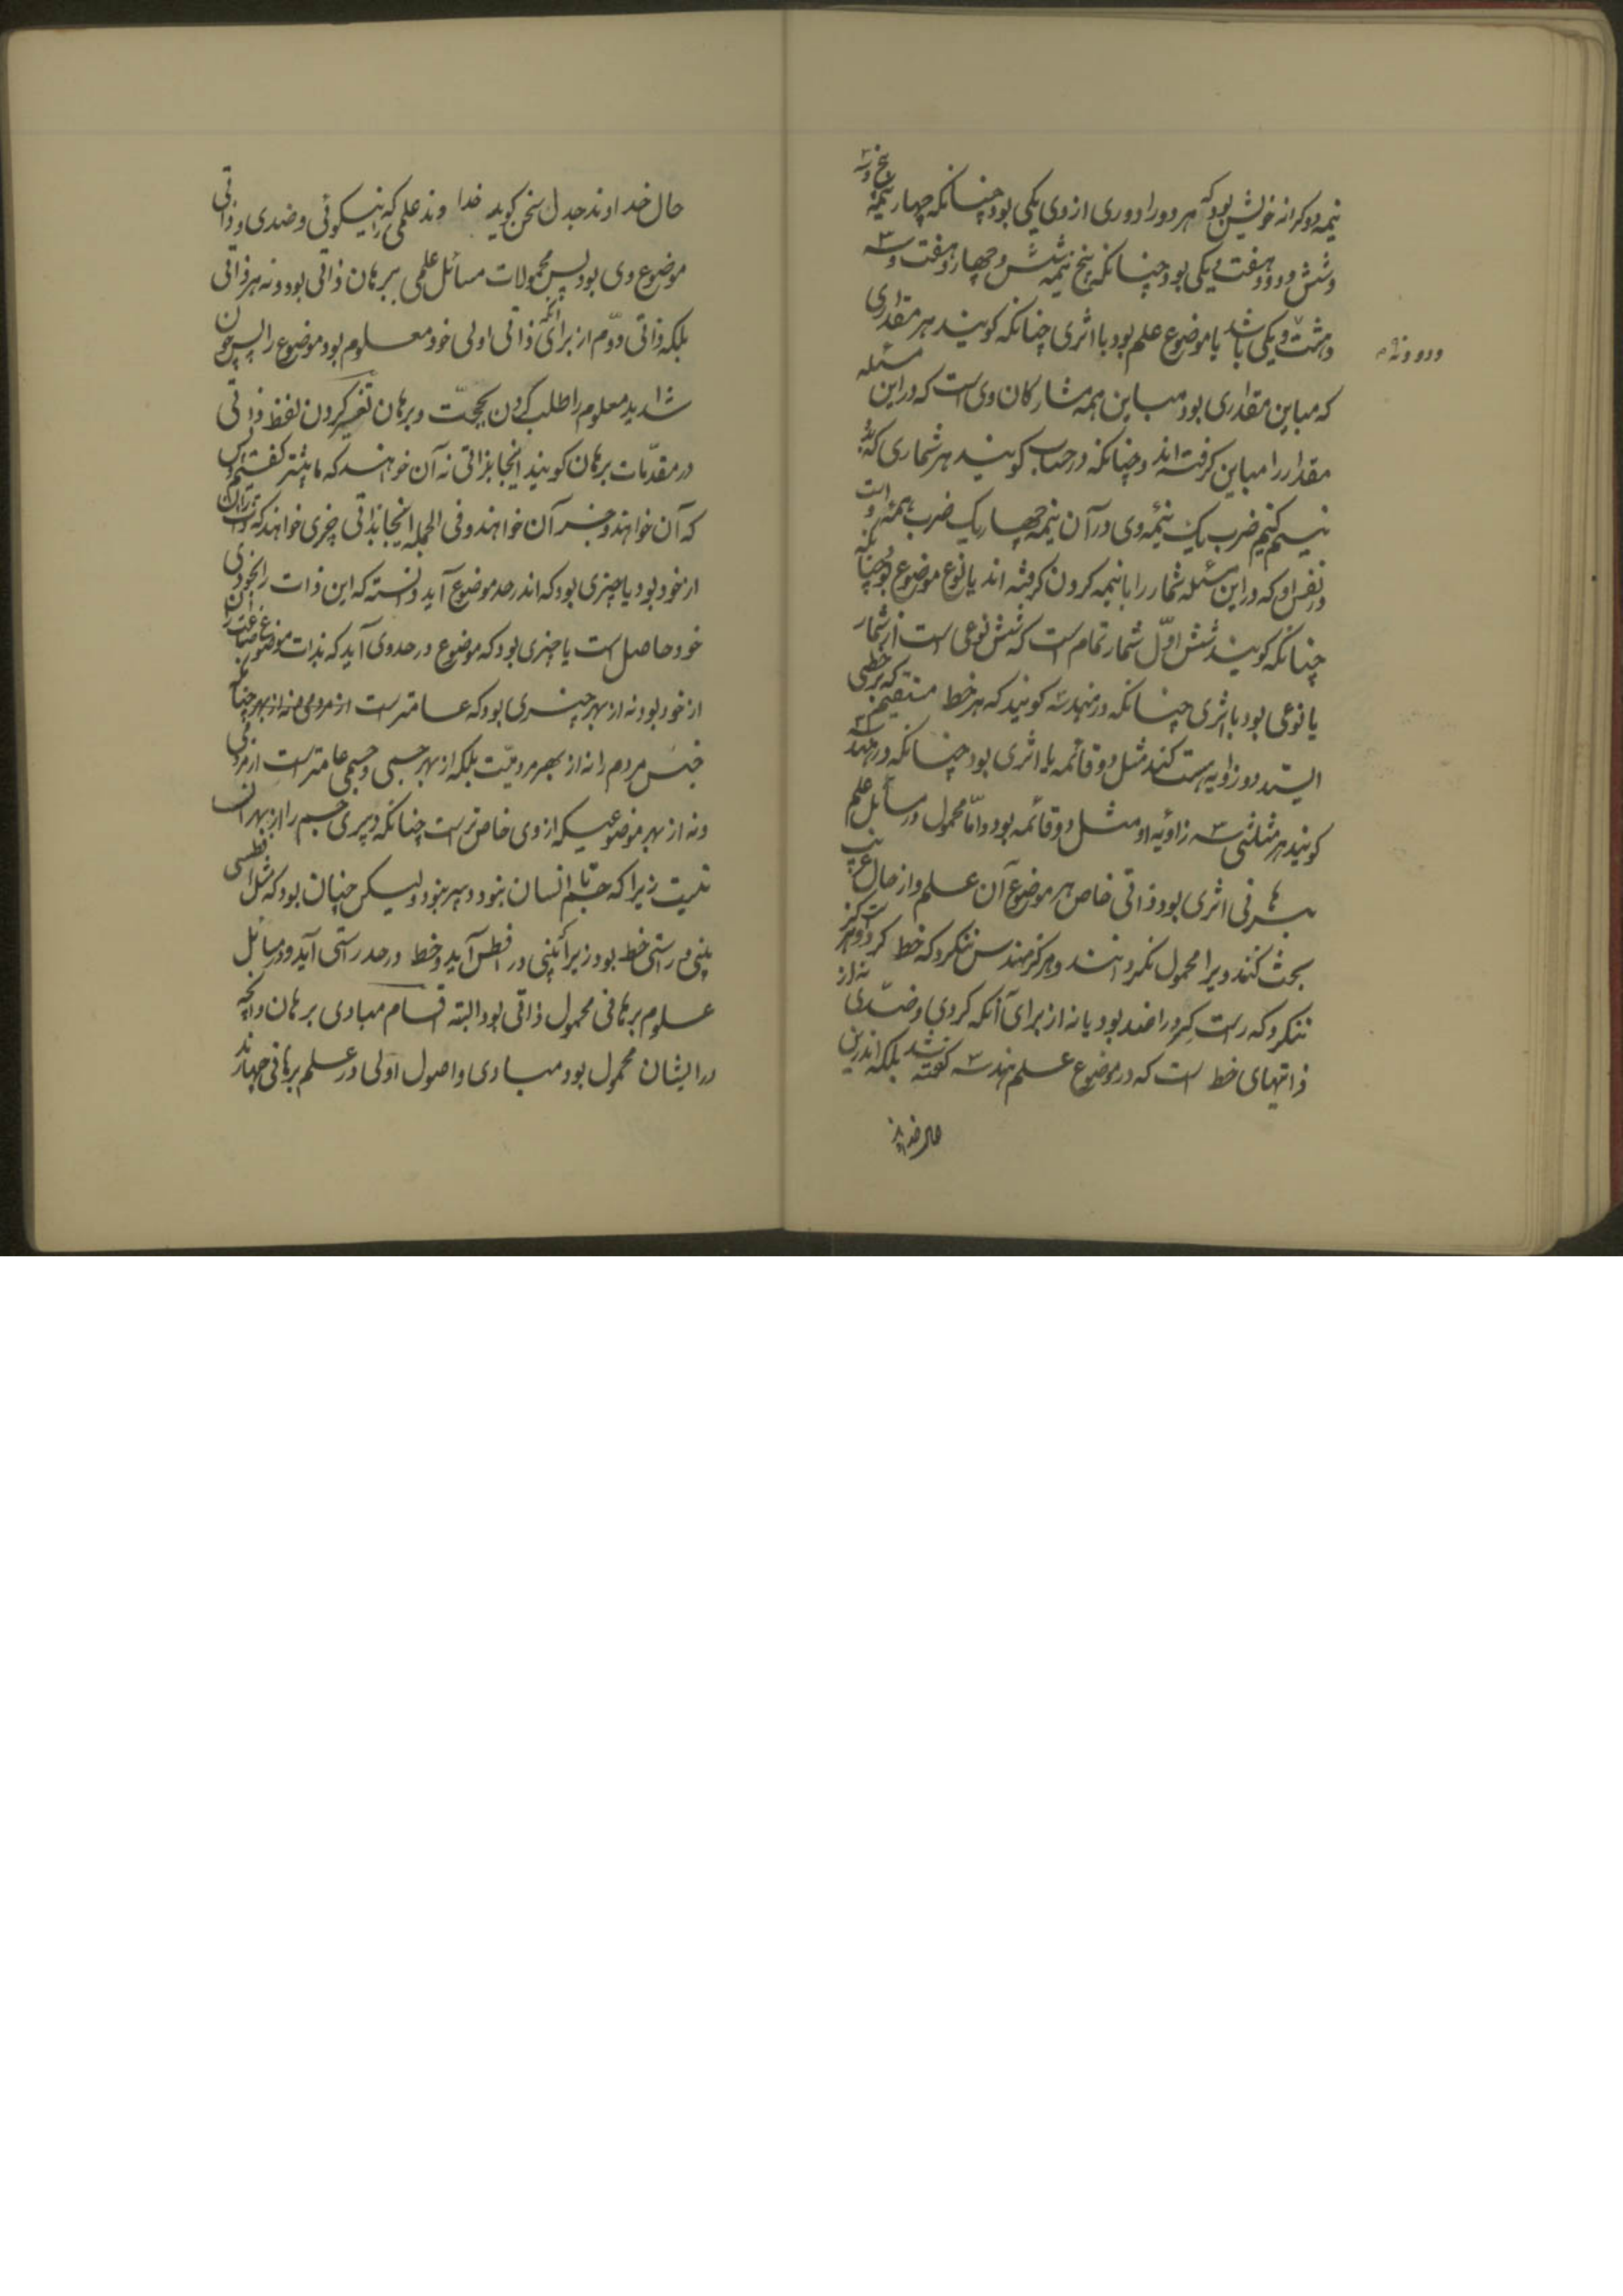 نیمه دو کرانه خویش بود که هر دو را دوری از وی یکی بود چنانکه چهار نیمه پنج و سه
و شش و دو و هفت و یکی بود چنانکه پنج نیمه شش و چهار و هفت و سه
و هشت و دو و نه و یکی باشد یا موضوع علم بود با اثری چنانکه گویند هر مقداری
که مباین مقداری بود مباین همه مشارکان وی است که در این مسئله
مقدار را مباین گرفته اند و چنانکه در حساب گویند هر شماری که
نیم کنیم ضرب یک نیمه وی در آن نیمه چهار یک ضرب همه است
در نفس او که در این مسئله شمار را با نیمه کردن گرفته اند یا نوع موضوع بود چنانکه
چنانکه گویند شش اوّل شمار تمام است که شش نوعی است از شمار
یا نوعی بود با اثری چنانکه در هندسه گویند که هر خط مستقیم که بر خطی
ایستد دو زاویه هست کند مثل دو قائمه یا اثری بود چنانکه در هندسه
گویند هر مثلثی سه زاویه او مثل دو قائمه بود و امّا محمول در مسائل علم
برهانی اثری بود ذاتی خاص هر موضوع آن علم و از حال غریب
بحث نکنند ویرا محمول نگردانند و هرگز مهندس ننگرد که خط گرد و هرگز
ننگرد که راست گرد را ضد بود یا نه از برای آنکه گردی و ضدّی نه از
ذاتیهای خط است که در موضوع علم هندسه گفته شد بلکه اندرین
حال خداوند
حال خداوند جدل سخن گوید خداوند علمی که نیکوئی و ضدی ذاتی
موضوع وی بود پس محمولات مسائل علمی برهان ذاتی بود و نه هر ذاتی
بلکه ذاتی دوّم از برای آنکه ذاتی اولی خود معلوم بود موضوع را پس چون
شاید معلوم را طلب کردن بحجّت و برهان تفسیر کردن لفظ ذاتی
در مقدّمات برهان گویند اینجا بذاتی نه آن خواهند که ما پیشتر گفتیم
که آن خواهند و جز آن خواهند و فی الجمله اینجا بذاتی چیزی خواهند که
از خود بود یا چیزی بود که اندر حد موضوع آید دانسته که این ذات را بخودی
خود حاصل است یا چیزی بود که موضوع در حد وی آید که بذات موضوع
از خود بود نه از بهر چیزی بود که عامتر است از مردمی نه از بهر چنانکه
جنبش مردم را نه از بهر مردمیّت بلکه از بهر جسمی و جسمی عامتر است از مردمی
و نه از بهر موضوعیکه از وی خاص تر است چنانکه دبیری جسم را از بهر انسان
نیست زیرا که جسم تا انسان نبود دبیر نبود ولیکن چنان بود که مثل افطسی
بینی و راستی خط بود زیرا بینی در افطس آید و خط در حد راستی آید و در مسائل
علوم برهانی محمول ذاتی بود البته اقسام مبادی برهان و آنچه
در ایشان محمول بود مبادی و اصول اوّلی در علم برهانی چهارند